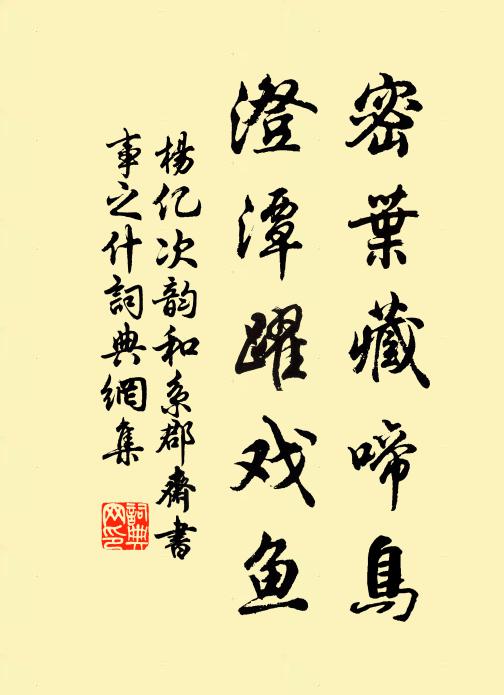 密葉藏啼鳥
澄潭躍戏鱼
楊亿次韵和系郡齋書
事之什詞典網集
詞典网印